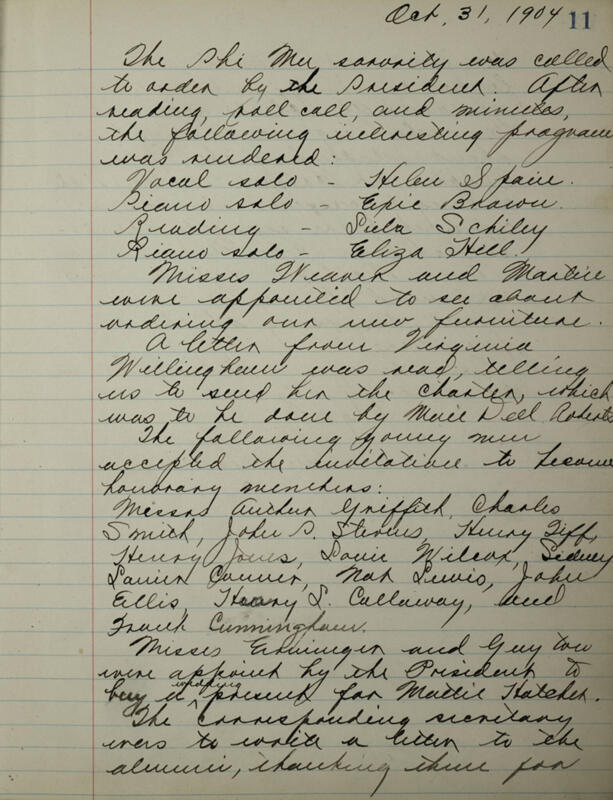 Oct, 31, 1904 11
The Phi Mu sorority was called
to order by the President. After
reading, roll call, and minutes,
the following interesting program
was rendered:
Vocal solo - Helen Spain.
Piano solo - Epic Brown.
Reading - Lula Schley
Piano solo - Eliza Hill.
Misses Weaver and Martin
were appointed to see about
ordering our new furniture.
A letter from Virginia
Willingham was read, telling
us to send her the charter, which
was to be done by Maie Dell Roberts
The following young men
accepted the invitation to become
honorary members:
Messrs Arthur Griffith, Charles
Smith, John P. Stevens, Henry Tiff,
Henry Jones, Louie Wilcox, Sidney
Lanier Conner, Nat Lewis, John
Ellis, Henry S. Callaway, and
Frank Cunningham.
Misses and Guy
were appoint by the President to
buy a wedding present for Mattie Hatcher.
The corresponding secretary
was to write a letter to the
alumni, thanking them for